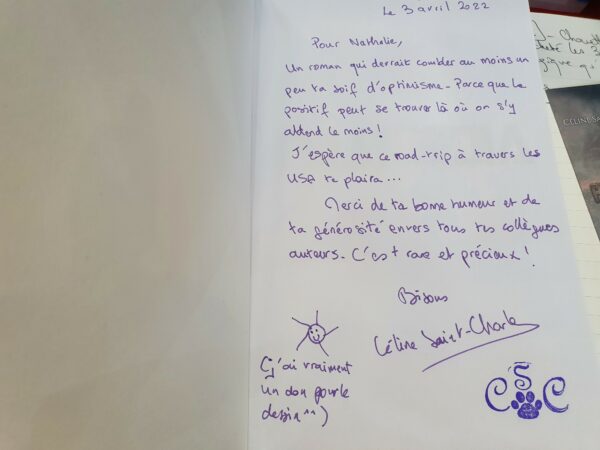 Le 3 avril 2022
Pour Nathalie,
Un roman qui devrait combler au moins un
peu ta soif d'optimisme - Parce que le
positif peut se trouver là où on s'y
attend le moins !
J'espère que ce road-trip à travers les
USA te plaira...
Merci de ta bonne humeur et de
ta générosité envers tous tes collègues
auteurs - C'est rare et précieux !
Bisous
Céline Saint-Charle
(j'ai vraiment
un don pour le
dessin ^^)
CSC
CÉLINE SA